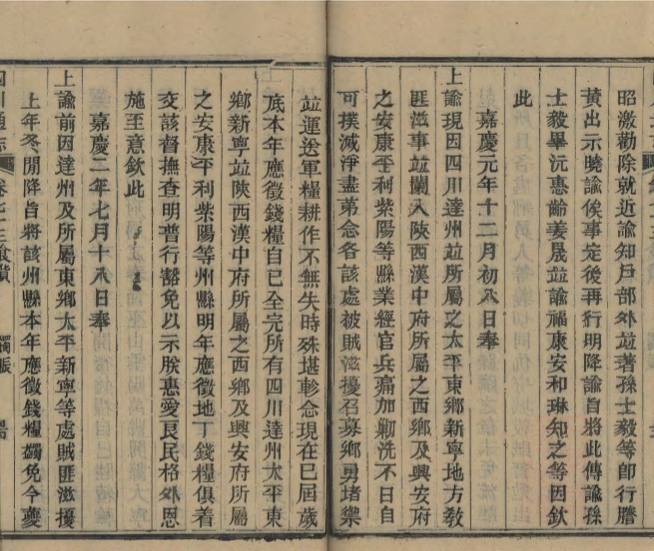 昭激勸除就近諭知戶部外並著孫士毅等即行謄
黃出示曉諭俟事定後再行明降諭旨將此傳諭孫
士毅畢沅惠齡姜晟並諭福康安和琳知之等因欽
此
嘉慶元年十二月初八日奉
上諭現因四川達州並所屬之太平東鄉新寧地方教
匪滋事並闌入陝西漢中府所屬之西鄉及興安府
之安康平利紫陽等縣業經官兵痛加勦洗不日自
可撲滅淨盡第念各該處被賊滋擾召募鄉勇堵禦
並運送軍糧耕作不無失時殊堪軫念現在已屆歲
底本年應徵錢糧自已全完所有四川達州太平東
鄉新寧並陝西漢中府所屬之西鄉及興安府所屬
之安康平利紫陽等州縣明年應徵地丁錢糧俱著
交該督撫查明普行豁免以示朕惠愛良民格外恩
施至意欽此
嘉慶二年七月十八日奉
上諭前因達州及所屬東鄉太平新寧等處賊匪滋擾
上年冬間降旨將該州縣本年應徵錢糧蠲免今夔
四川通志 卷七十三食貨 蠲賑